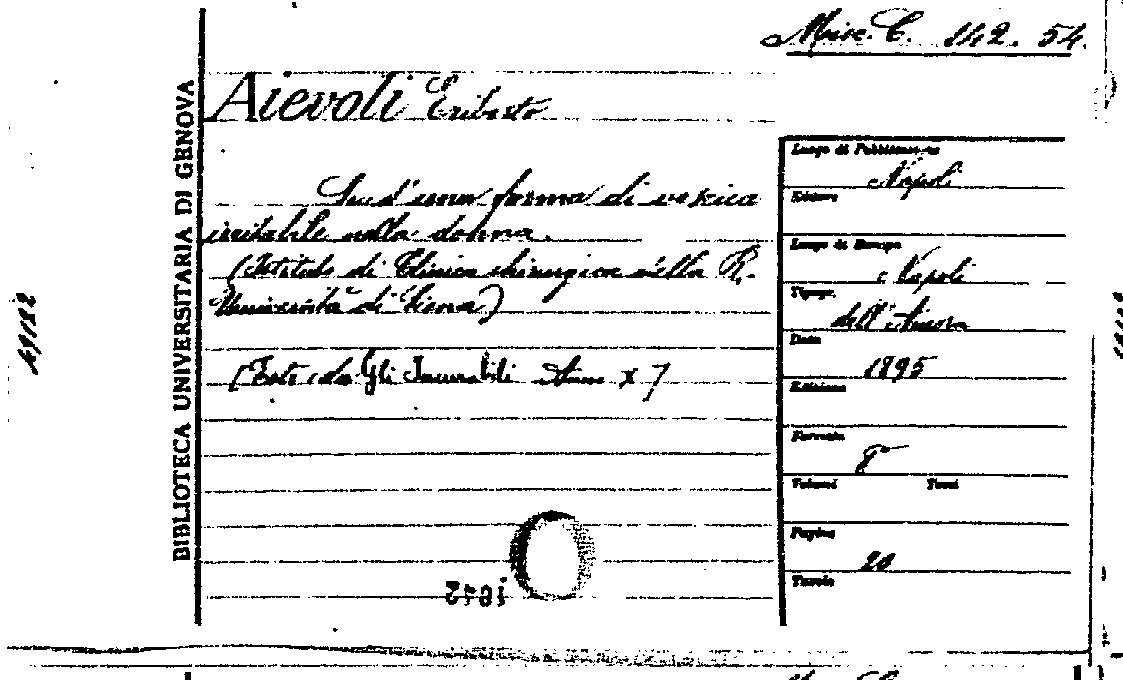 Misc. C. 142. 54.
BIBLIOTECA UNIVERSITARIA DI GENOVA
Aievoli Eriberto
Su d'una forma di vescica
irritabile nella donna.
(Istituto di Clinica chirurgica della R.
Università di Siena)
[Estr. da Gli Incurabili Anno X]
Luogo di Pubblicazione
Napoli
Editore
Luogo di Stampa
Napoli
Tipogr.
dell'Ancora
Data
1895
Edizione
Formato
8°
Volumi Tomi
Pagine
20
Tavole